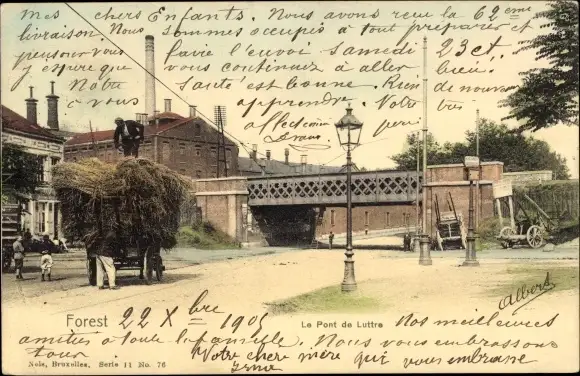 Mes chers Enfants. Nous avons reçu la 62eme
livraison. Nous sommes occupés à tout préparer et
pensons vous faire l'envoi samedi 23 ct.
j'espère que vous continuez à aller bien.
Notre santé est bonne. Rien de nouveau
à vous apprendre. Votre père
affectionné
Albert
Forest
22 Xbre 1905
Le Pont de Luttre
Nos meilleures
amitiés à toute la famille. Nous vous embrassons
tous
Votre chère mère qui vous embrasse
Nels, Bruxelles, Serie 11 No. 76